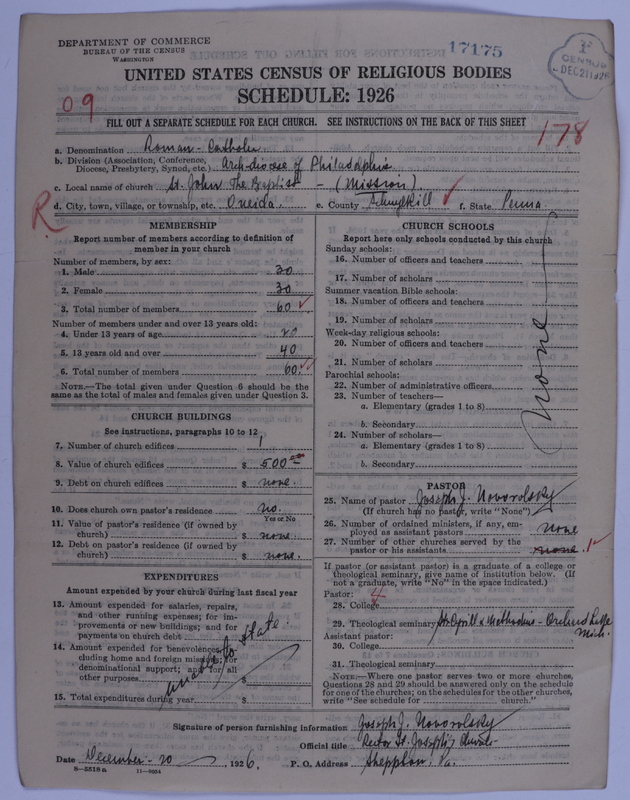 DEPARTMENT OF COMMERCE
BUREAU OF THE CENSUS
WASHINGTON
17175
CENSUS
DEC 21 1926
UNITED STATES CENSUS OF RELIGIOUS BODIES
SCHEDULE: 1926
09
FILL OUT A SEPARATE SCHEDULE FOR EACH CHURCH. SEE INSTRUCTIONS ON THE BACK OF THIS SHEET
178
a. Denomination Roman-Catholic
b. Division (Association, Conference, Diocese, Presbytery, Synod, etc.) Arch-diocese of Philadelphia
c. Local name of church St. John The Baptist - (Mission)
d. City, town, village, or township, etc. Oneida. e. County Schuylkill f. State Penna.
R
MEMBERSHIP
Report number of members according to definition of
member in your church
Number of members, by sex:
1. Male 30
2. Female 30
3. Total number of members 60
Number of members under and over 13 years old:
4. Under 13 years of age 20
5. 13 years old and over 40
6. Total number of members 60.
NOTE.—The total given under Question 6 should be the
same as the total of males and females given under Question 3.
CHURCH BUILDINGS
See instructions, paragraphs 10 to 12
7. Number of church edifices 1
8. Value of church edifices $ 500
9. Debt on church edifices $ none.
10. Does church own pastor's residence? no.
Yes or No
11. Value of pastor's residence (if owned by
church) $ none.
12. Debt on pastor's residence (if owned by
church) $ none.
EXPENDITURES
Amount expended by your church during last fiscal year
13. Amount expended for salaries, repairs,
and other running expenses; for im-
provements or new buildings; and for
payments on church debt $
14. Amount expended for benevolences, in-
cluding home and foreign missions; for
denominational support; and for all
other purposes $
15. Total expenditures during year $
unable to state.
CHURCH SCHOOLS
Report here only schools conducted by this church
Sunday schools:
16. Number of officers and teachers
17. Number of scholars
Summer vacation Bible schools:
18. Number of officers and teachers
19. Number of scholars
Week-day religious schools:
20. Number of officers and teachers
21. Number of scholars
Parochial schools:
22. Number of administrative officers
23. Number of teachers—
a. Elementary (grades 1 to 8)
b. Secondary
24. Number of scholars—
a. Elementary (grades 1 to 8)
b. Secondary
none
PASTOR
25. Name of pastor Joseph J. Novorolsky
(If church has no pastor, write "None")
26. Number of ordained ministers, if any, em-
ployed as assistant pastors none
27. Number of other churches served by the
pastor or his assistants none. 1
If pastor (or assistant pastor) is a graduate of a college or
theological seminary, give name of institution below. (If
not a graduate, write "No" in the space indicated.)
Pastor: 4
28. College
29. Theological seminary St. Cyrill & Methodius - Orchard Lake
Mich.
Assistant pastor:
30. College
31. Theological seminary
NOTE.—Where one pastor serves two or more churches,
Questions 28 and 29 should be answered only on the schedule
for one of the churches; on the schedules for the other churches,
write "See schedule for church."
Signature of person furnishing information Joseph J. Novorolsky
Official title Rector St. Joseph's Church
Date December-20, 1926. P. O. Address Sheppton. Pa.
8—5518a 11—9954